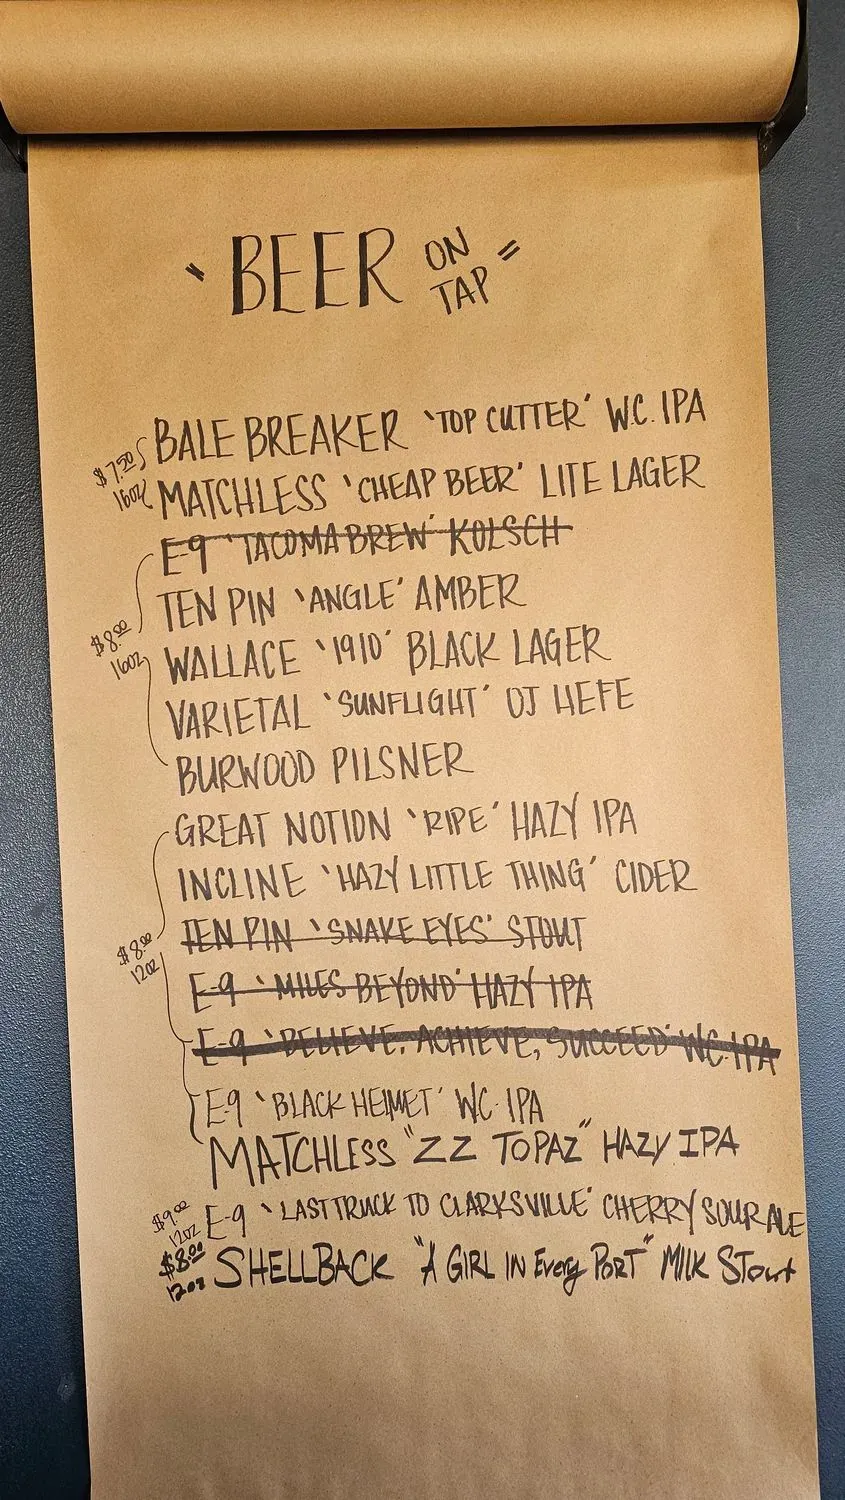 "BEER ON TAP"
BALE BREAKER 'TOP CUTTER' W.C. IPA
$7.50
16oz
MATCHLESS 'CHEAP BEER' LITE LAGER
E-9 'TACOMA BREW' KOLSCH
TEN PIN 'ANGLE' AMBER
$8.00
16oz
WALLACE '1910' BLACK LAGER
VARIETAL 'SUNFLIGHT' OJ HEFE
BURWOOD PILSNER
GREAT NOTION 'RIPE' HAZY IPA
INCLINE 'HAZY LITTLE THING' CIDER
$8.00
12oz
TEN PIN 'SNAKE EYES' STOUT
E-9 'MILES BEYOND' HAZY IPA
E-9 'BELIEVE, ACHIEVE, SUCCEED' WC IPA
E-9 'BLACK HELMET' WC. IPA
MATCHLESS "ZZ TOPAZ" HAZY IPA
$9.00
12oz
E-9 'LAST TRUCK TO CLARKSVILLE' CHERRY SOUR ALE
$8.00
12oz
SHELLBACK "A GIRL IN EVERY PORT" MILK STOUT